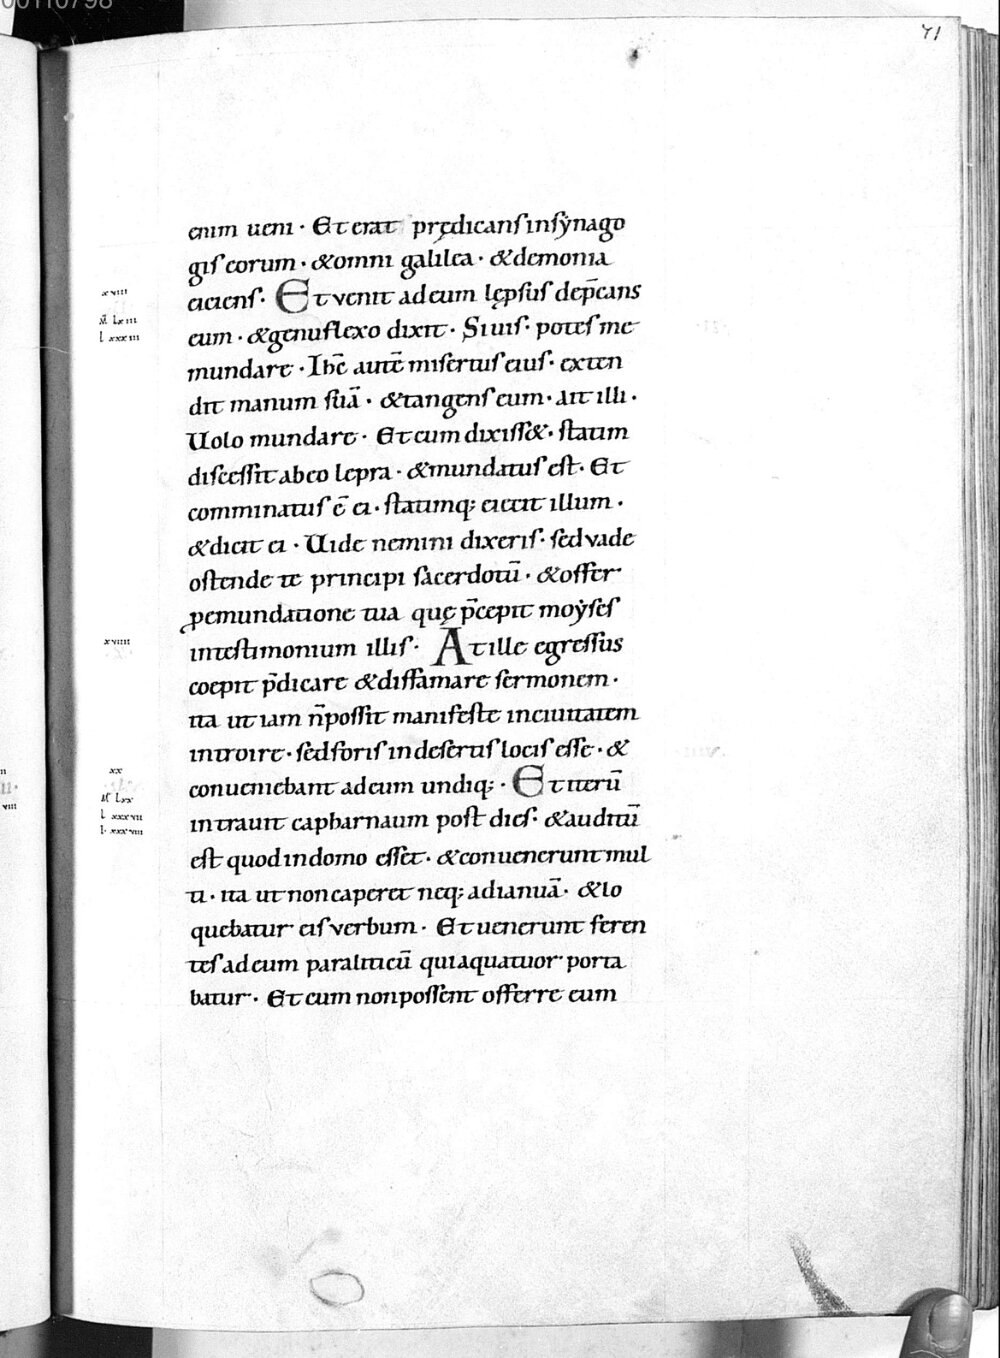 00110798
71
enim ueni · Et erat prędicans in sẏnago
gis eorum · & omni galilea · & demonia
eiciens · Et venit ad eum lępsus dep̄cans
eum · & genuflexo dixit · Si uis · potes me
mundare · Ihc̄ autē misertus eius · exten
dit manum suā · & tangens eum · ait illi ·
Uolo mundare · Et cum dixiss& · statim
discessit ab eo lepra · & mundatus est · Et
comminatus ē ei · statimq; eiecit illum ·
& dicit ei · Uide nemini dixeris · sed vade
ostende te principi sacerdotū · & offer
p emundatione tua quę p̄cepit moẏses
in testimonium illis · At ille egressus
coepit p̄dicare & diffamare sermonem ·
ita ut iam n̄ possit manifeste in ciuitatem
introire · sed foris in desertis locis esse · &
conueniebant ad eum undiq; · Et iterū
intrauit capharnaum post dies · & auditū
est quod in domo esset · & conuenerunt mul
ti · ita ut non caperet neq; ad ianuā · & lo
quebatur eis verbum · Et uenerunt feren
tes ad eum paraliticū qui a quatuor porta
batur · Et cum non possent offerre eum
xviii
M̄ lxiii
l xxxiii
xviiii
xx
M̄ lxx
l xxxvii
l · xxxviii
viii